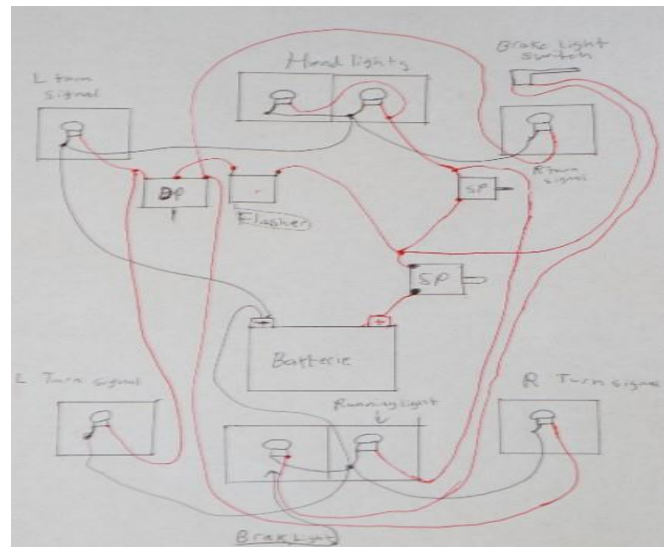 Head lights
Brake Light
switch
L turn
signal
R turn
signal
DP
Flasher
SP
SP
-
+
Batterie
L Turn signal
Running light
R Turn signal
Brake Light